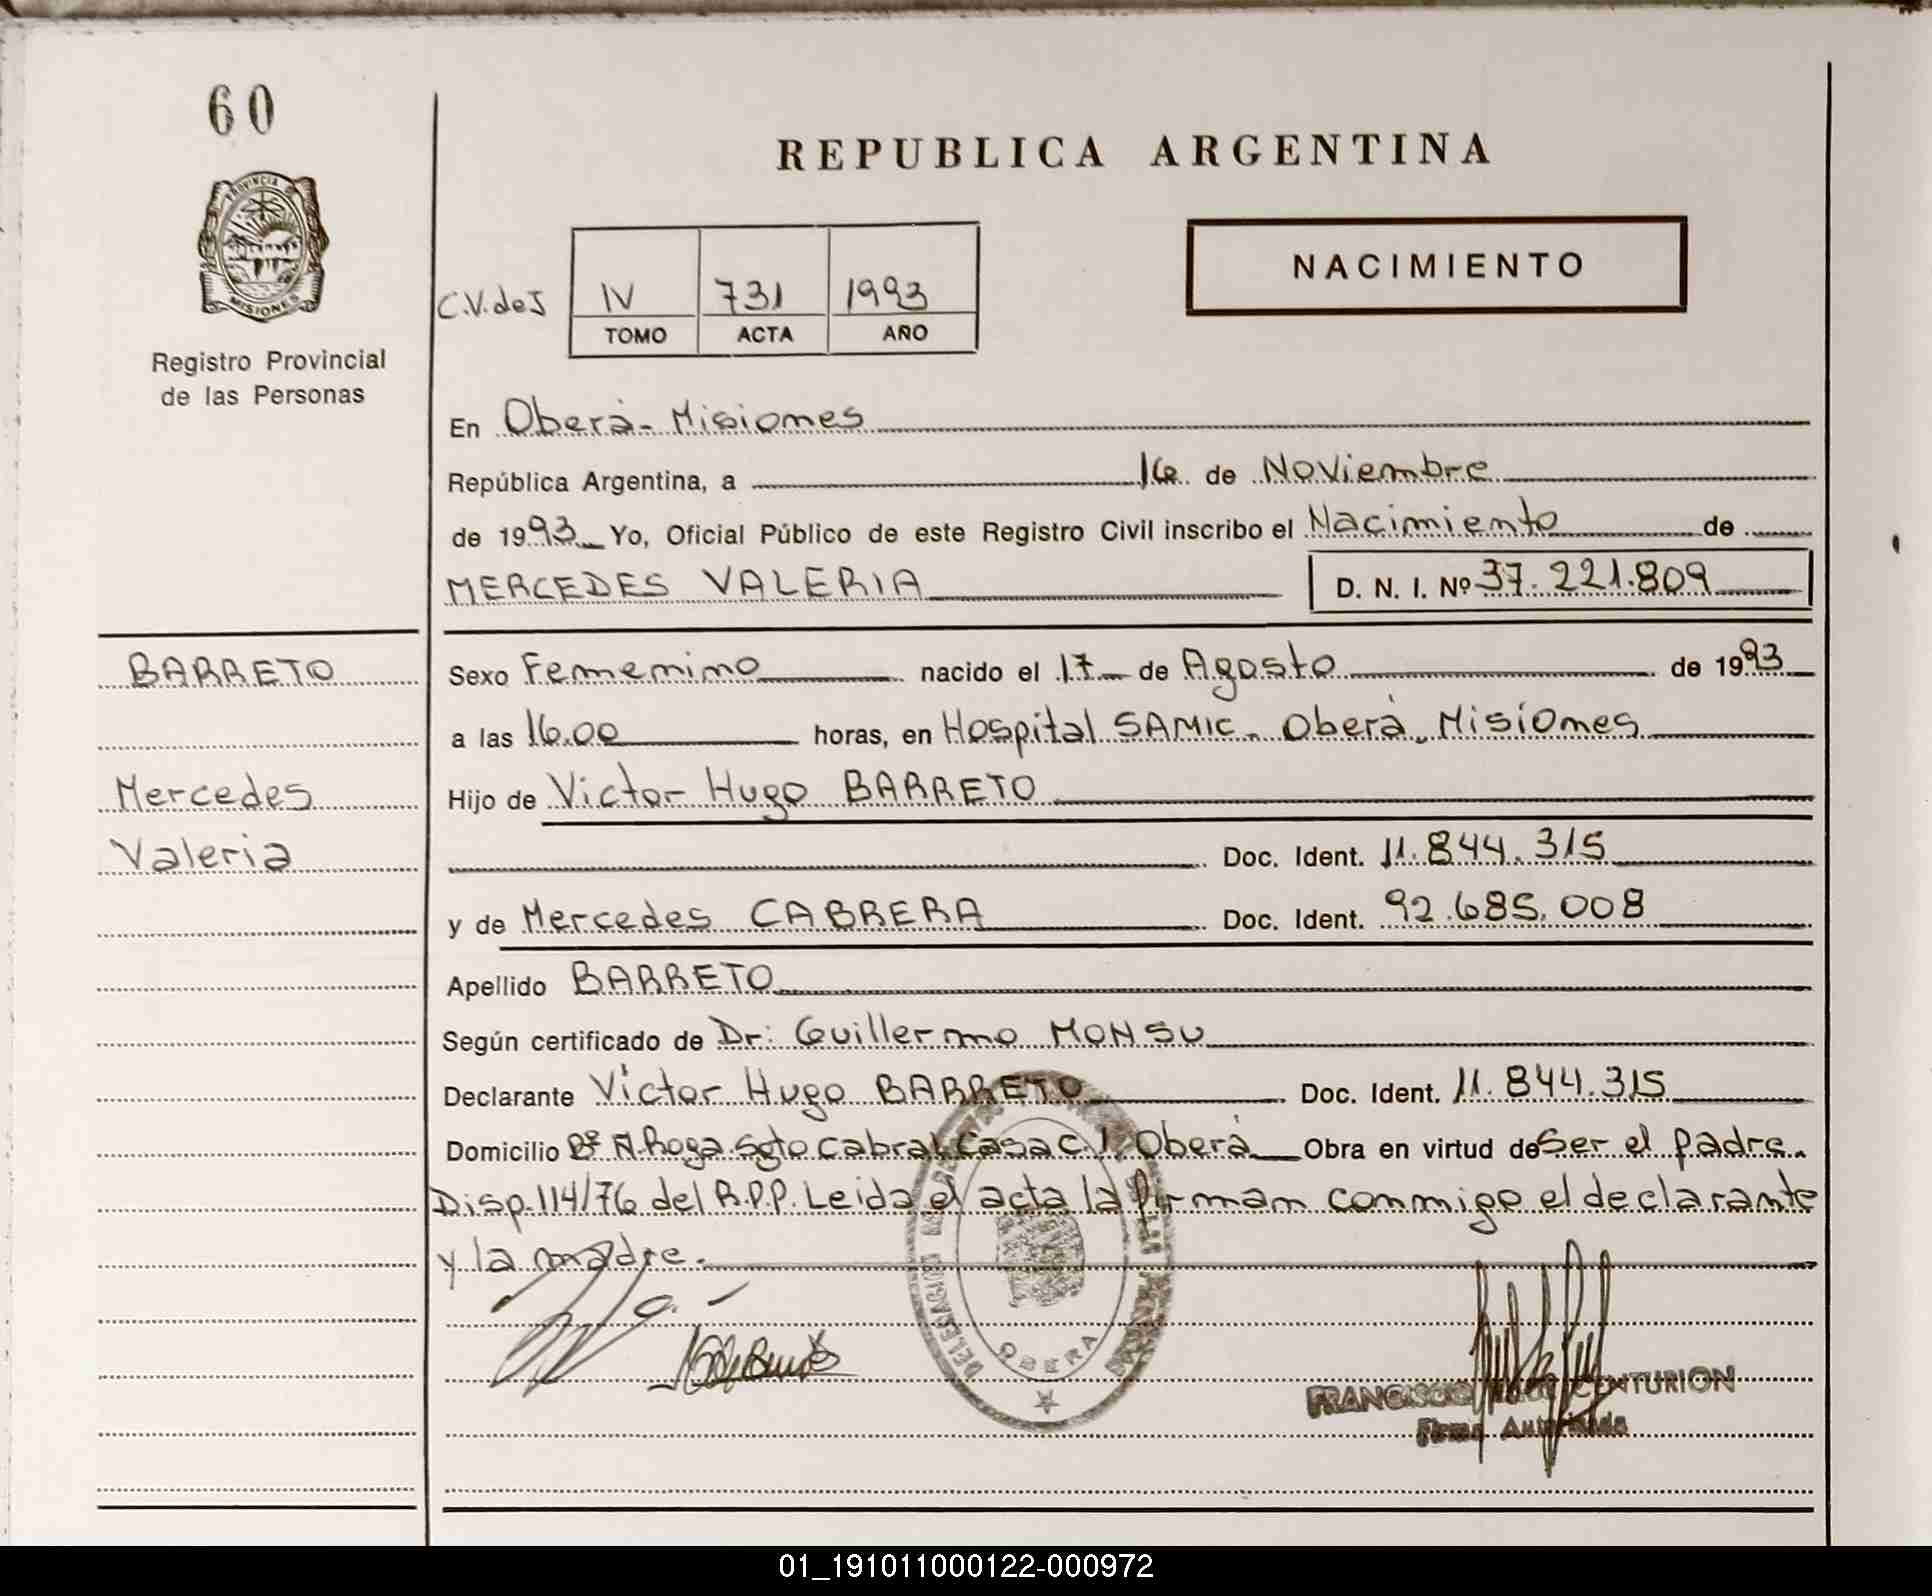 60
REPUBLICA ARGENTINA
PROVINCIA DE
MISIONES
Registro Provincial
de las Personas
NACIMIENTO
C.V.deJ IV 731 1993
TOMO ACTA AÑO
En Oberá- Misiones
República Argentina, a 16 de Noviembre
de 1993 Yo, Oficial Público de este Registro Civil inscribo el Nacimiento de
MERCEDES VALERIA D. N. I. Nº 37.221.809
BARRETO
Mercedes
Valeria
Sexo Femenino nacido el 17 de Agosto de 1993
a las 16.00 horas, en Hospital SAMIC. Oberá, Misiones
Hijo de Victor Hugo BARRETO
Doc. Ident. 11.844.315
y de Mercedes CABRERA Doc. Ident. 92.685.008
Apellido BARRETO
Según certificado de Dr: Guillermo MONSU
Declarante Victor Hugo BARRETO Doc. Ident. 11.844.315
Domicilio Bº N.Roga Sgto Cabral Casa C.1 Oberá Obra en virtud de Ser el padre.
Disp.114/76 del R.P.P. Leida el acta la firman conmigo el declarante
y la madre.
OBERA
FRANCISCO CENTURION
Firma Autorizada
01_191011000122-000972